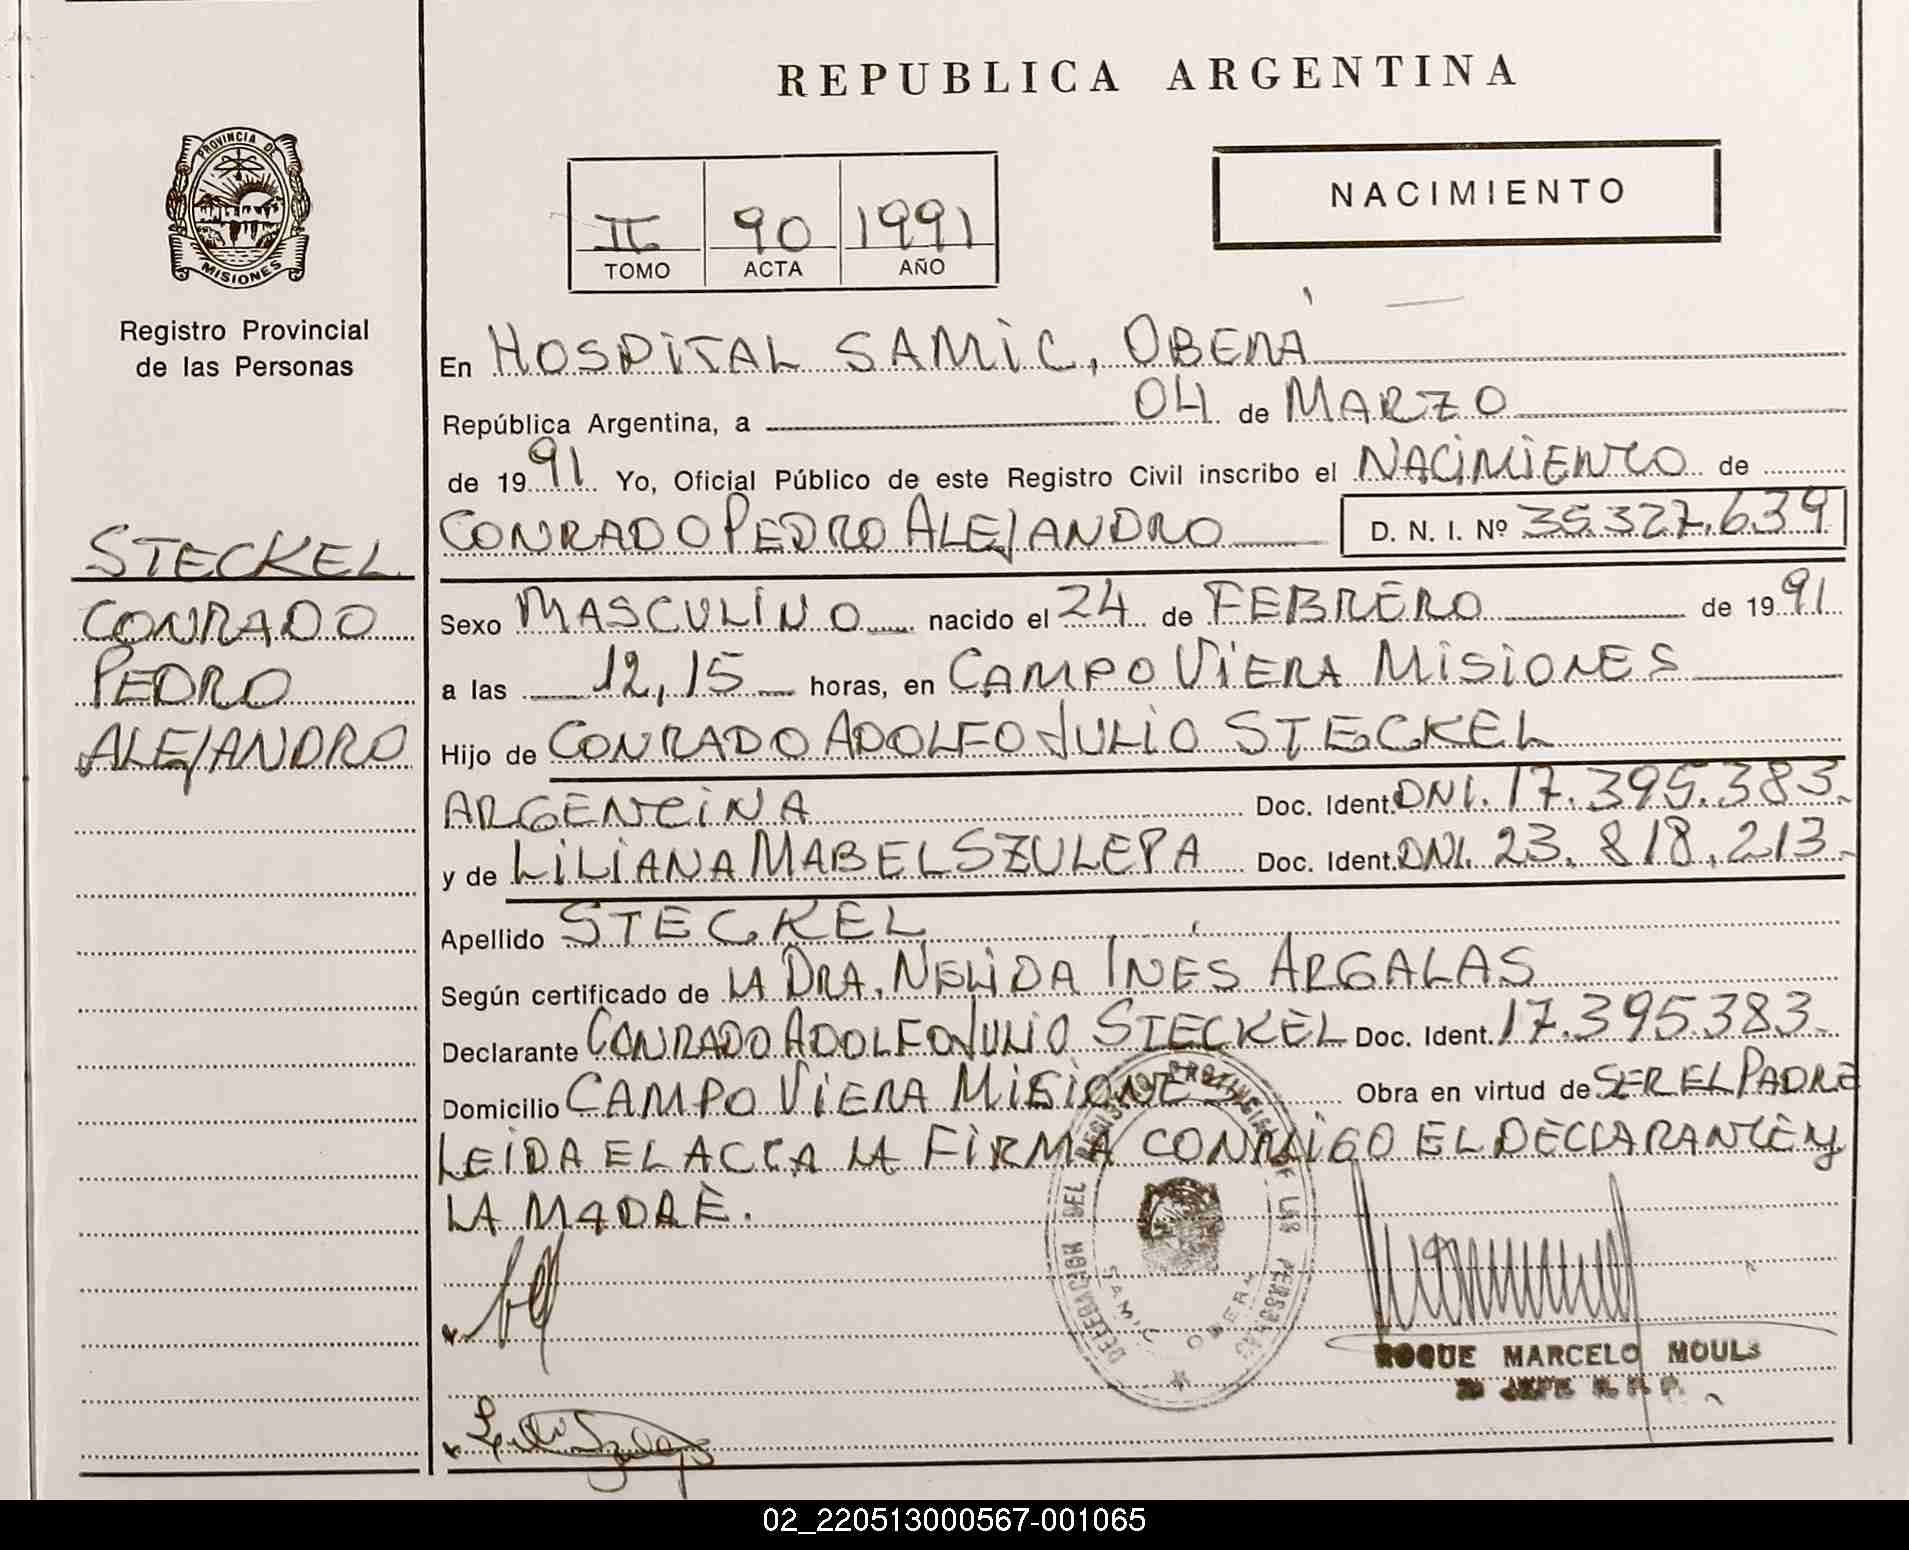 REPUBLICA ARGENTINA
PROVINCIA DE
MISIONES
Registro Provincial
de las Personas
II 90 1991
TOMO ACTA AÑO
NACIMIENTO
En HOSPITAL SAMIC, OBERÁ
República Argentina, a 04 de MARZO
de 1991 Yo, Oficial Público de este Registro Civil inscribo el NACIMIENTO de
CONRADO PEDRO ALEJANDRO D. N. I. Nº 35.327.639
STECKEL
CONRADO
PEDRO
ALEJANDRO
Sexo MASCULINO nacido el 24 de FEBRERO de 1991
a las 12,15 horas, en CAMPO VIERA MISIONES
Hijo de CONRADO ADOLFO JULIO STECKEL
ARGENTINA Doc. Ident. DNI. 17.395.383
y de LILIANA MABEL SZULEPA Doc. Ident. DNI. 23.818.213
Apellido STECKEL
Según certificado de LA DRA. NELIDA INÉS ARGALAS
Declarante CONRADO ADOLFO JULIO STECKEL Doc. Ident. 17.395383
Domicilio CAMPO VIERA MISIONES Obra en virtud de SER EL PADRE
LEIDA EL ACTA LA FIRMA CONMIGO EL DECLARANTE y
LA MADRE.
DELEGACION DEL REGISTRO PROVINCIAL DE LAS PERSONAS
SAMIC OBERA
ROQUE MARCELO MOULS
JEFE R. P. P.
02_220513000567-001065